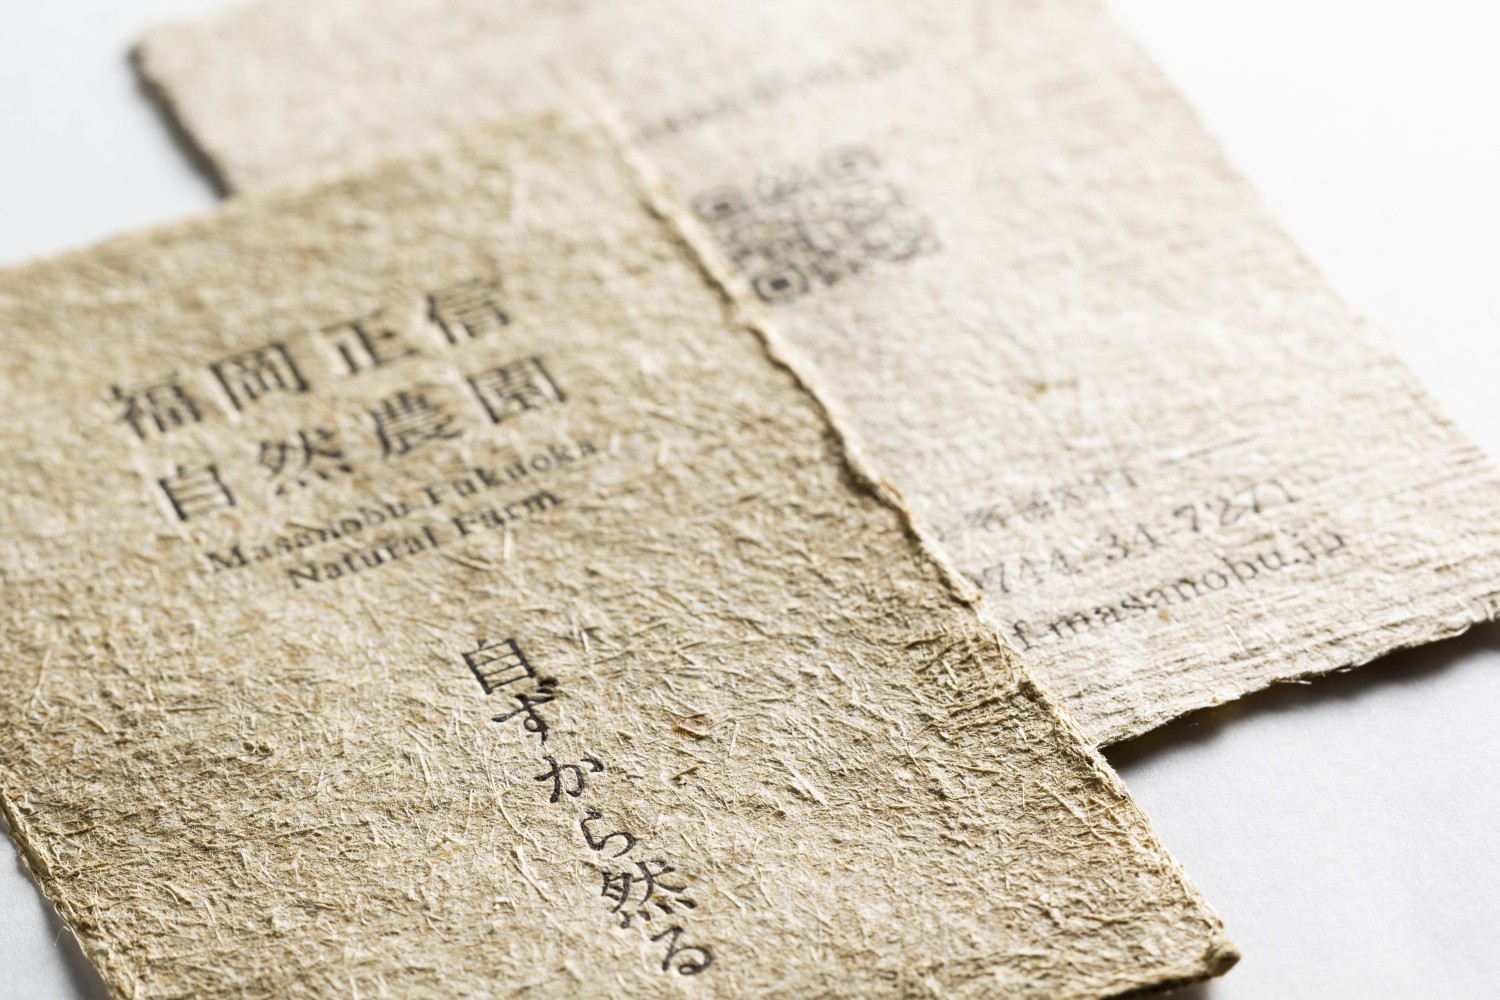 福岡正信
自然農園
Masanobu Fukuoka
Natural Farm
自ずから然る
0744-34-7271
f-masanobu.jp